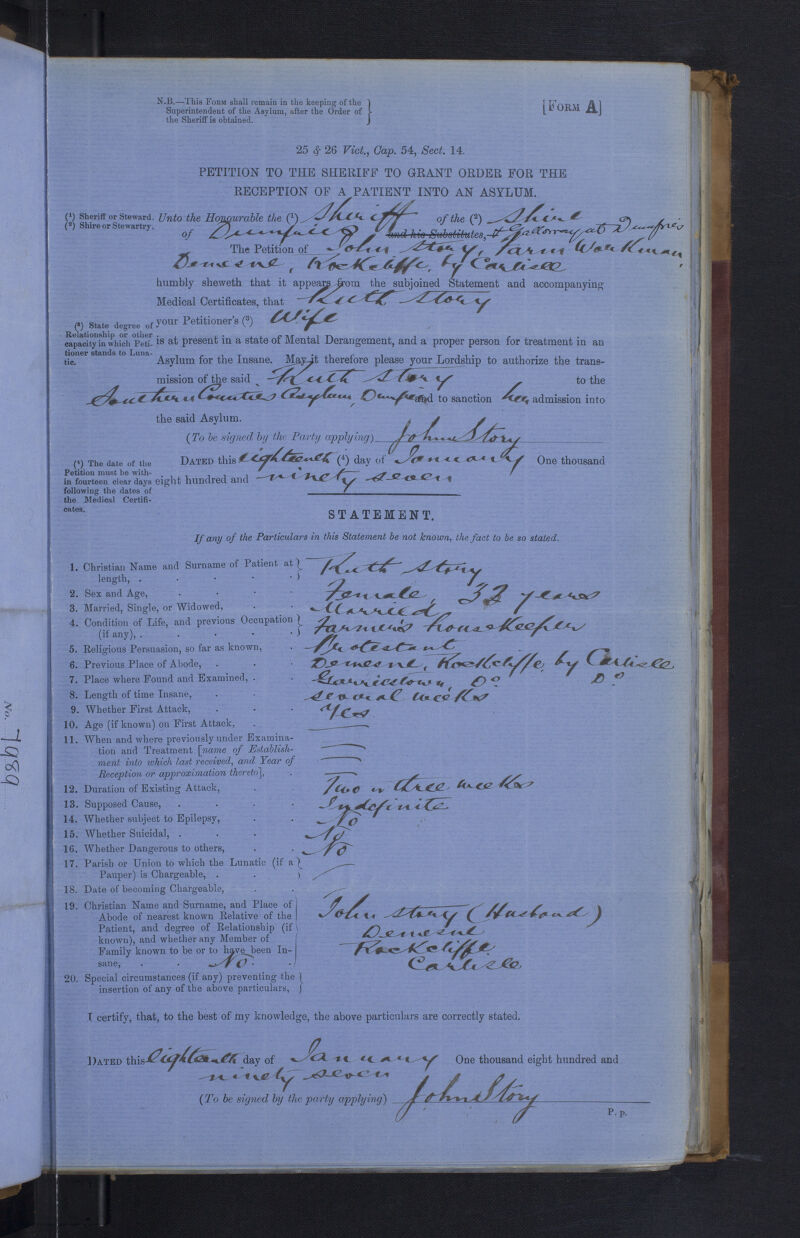 N.B.—This Form shall remain in the keeping of the
Superintendent of the Asylum, after the Order of
the Sheriff is obtained.
[Form A]
25 & 26 Vict., Cap. 54, Sect. 14.
PETITION TO THE SHERIFF TO GRANT ORDER FOR THE
RECEPTION OF A PATIENT INTO AN ASYLUM.
(1) Sheriff or Steward.
(2) Shire or Stewartry.
Unto the Honourable the (1) Sheriff of the (2) Shire
of Dumfries and his Substitutes, & Galloway at Dumfries
The Petition of John Story, Farm Workman,
Demesne, Rockcliffe, by Carlisle
humbly sheweth that it appears from the subjoined Statement and accompanying
Medical Certificates, that Ruth Story
(3) State degree of
Relationship or other
capacity in which Peti-
tioner stands to Luna-
tic.
your Petitioner's (3) Wife
is at present in a state of Mental Derangement, and a proper person for treatment in an
Asylum for the Insane. May it therefore please your Lordship to authorize the trans-
mission of the said Ruth Story to the
Southern Counties Asylum, Dumfries and to sanction her admission into
the said Asylum.
(To be signed by the Party applying) John Story
(4) The date of the
Petition must be with-
in fourteen clear days
following the dates of
the Medical Certifi-
cates.
Dated this eighteenth (4) day of January One thousand
eight hundred and ninety seven
STATEMENT.
If any of the Particulars in this Statement be not known, the fact to be so stated.
1. Christian Name and Surname of Patient at
length, . Ruth Story
2. Sex and Age, Female, 32 years
3. Married, Single, or Widowed, Married
4. Condition of Life, and previous Occupation
(if any), . Farmer's housekeeper
5. Religious Persuasion, so far as known, Protestant
6. Previous Place of Abode, Demesne, Rockcliffe, by Carlisle
7. Place where Found and Examined, Garriestown, Do Do
8. Length of time Insane, several weeks
9. Whether First Attack, Yes
10. Age (if known) on First Attack, —
11. When and where previously under Examina-
tion and Treatment [name of Establish-
ment into which last received, and Year of
Reception or approximation thereto], —
12. Duration of Existing Attack, Two or three weeks
13. Supposed Cause, Indefinite
14. Whether subject to Epilepsy, No
15. Whether Suicidal, No
16. Whether Dangerous to others, No
17. Parish or Union to which the Lunatic (if a
Pauper) is Chargeable, —
18. Date of becoming Chargeable, —
19. Christian Name and Surname, and Place of
Abode of nearest known Relative of the
Patient, and degree of Relationship (if
known), and whether any Member of
Family known to be or to have been In-
sane, No
John Story (Husband)
Demesne
Rockcliffe
Carlisle
20. Special circumstances (if any) preventing the
insertion of any of the above particulars,
I certify, that, to the best of my knowledge, the above particulars are correctly stated.
Dated this Eighteenth day of January One thousand eight hundred and
ninety seven
(To be signed by the party applying) John Story
P. p.
No. 7989